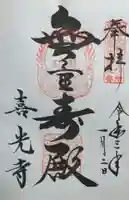 奉拝
無量寿殿
喜光寺
令和三年
一月二日